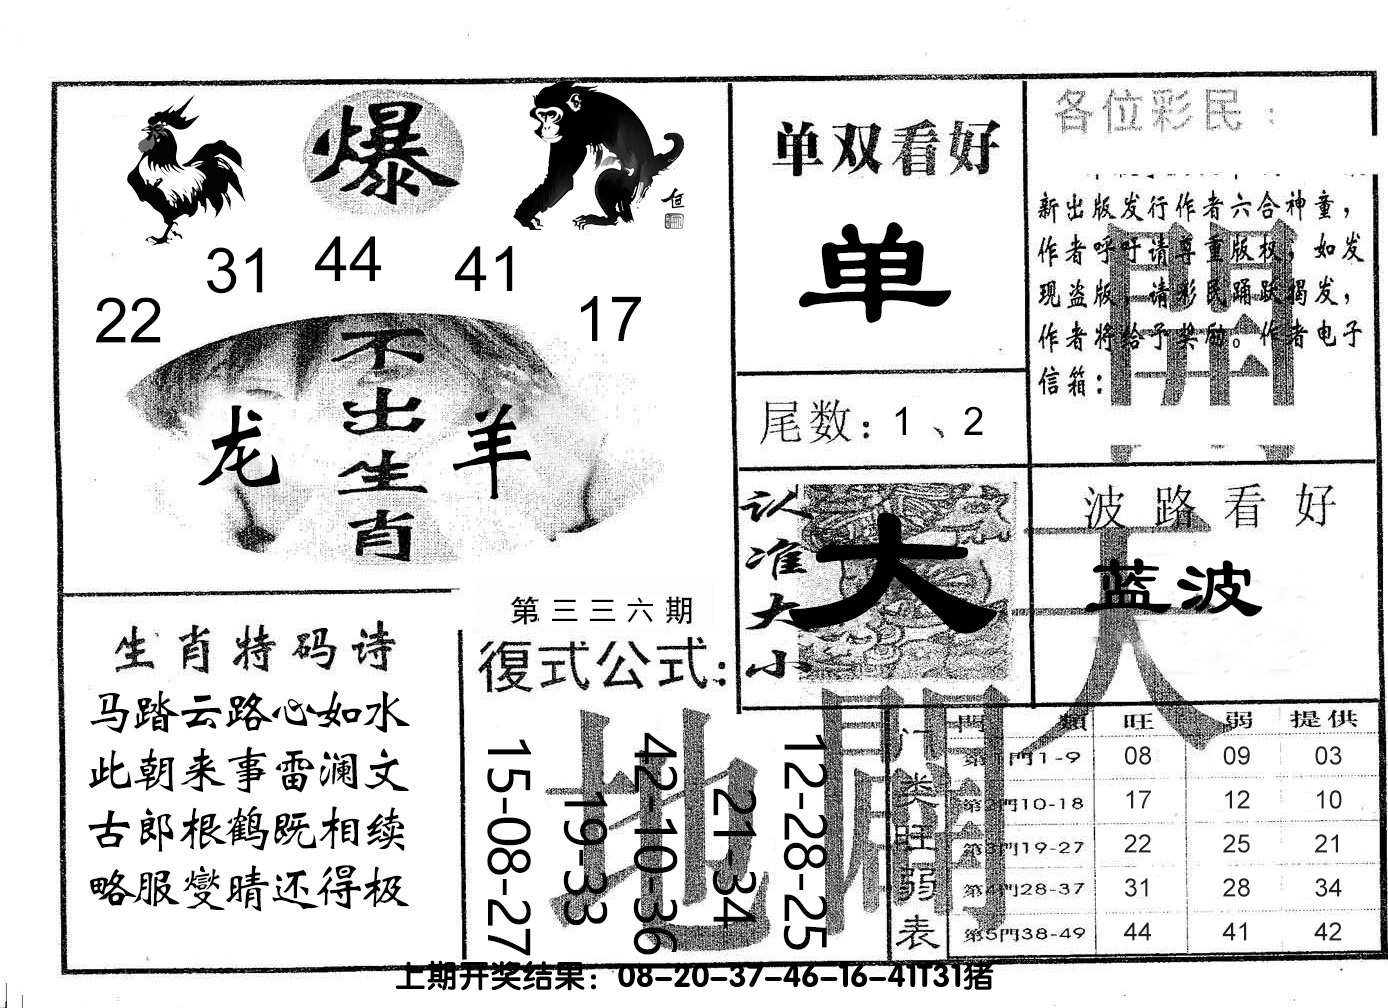 爆
22 31 44 41 17
不出生肖
龙 羊
单双看好
单
尾数：1、2
认准大小
大
各位彩民：
新出版发行作者六合神童，
作者呼吁请尊重版权，如发
现盗版，请彩民踊跃揭发，
作者将给予奖励。作者电子
信箱：
開
波路看好
蓝波
天
生肖特码诗
马踏云路心如水
此朝来事雷澜文
古郎根鹤既相续
略服燮晴还得极
第三三六期
復式公式：
15-08-27
19-33
42-10-36
21-34
12-28-25
地
開
门类旺弱表
門類 旺 弱 提供
第1門1-9 08 09 03
第2門10-18 17 12 10
第3門19-27 22 25 21
第4門28-37 31 28 34
第5門38-49 44 41 42
上期开奖结果：08-20-37-46-16-41T31猪